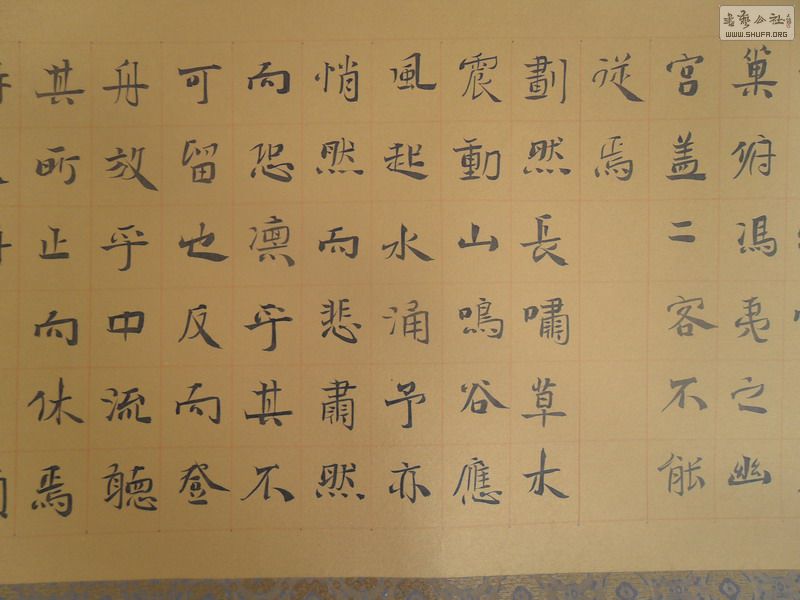 巢俯馮夷之幽
宮蓋二客不能
從焉
劃然長嘯草木
震動山鳴谷應
風起水涌予亦
悄然而悲肅然
而恐凛乎其不
可留也反而登
舟放乎中流聽
其所止而休焉
書藝公社
WWW.SHUFA.ORG